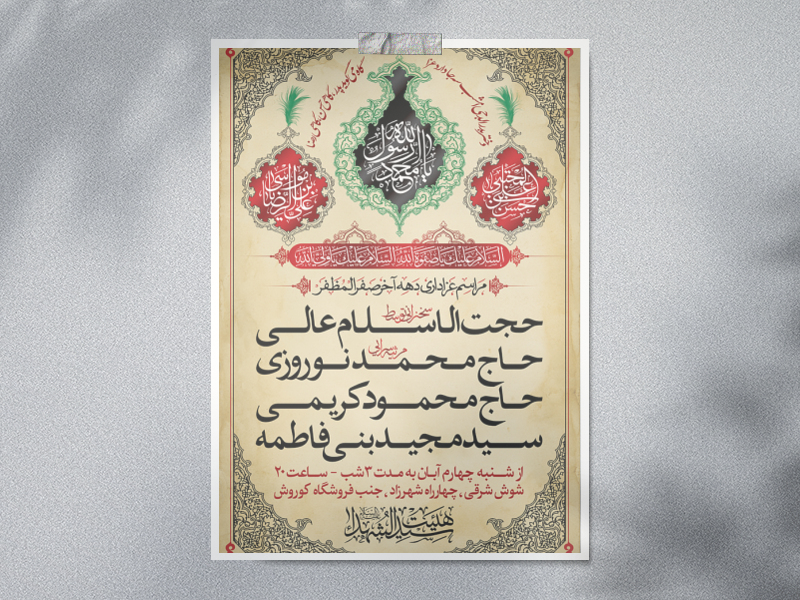 یا رسول الله
یا محمد
علی بن موسی الرضا
حسن بن علی المجتبی
السلام علیک یا صفوة الله السلام علیک یا ولی الله
مراسم عزاداری دهه آخر صفر المظفر
سخنرانی توسط
حجت الاسلام عالی
مرثیه سرایی
حاج محمد نوروزی
حاج محمود کریمی
سید مجید بنی فاطمه
از شنبه چهارم آبان به مدت ۳ شب - ساعت ۲۰
شوش شرقی ، چهارراه شهرزاد ، جنب فروشگاه کوروش
هیئت سیدالشهدا